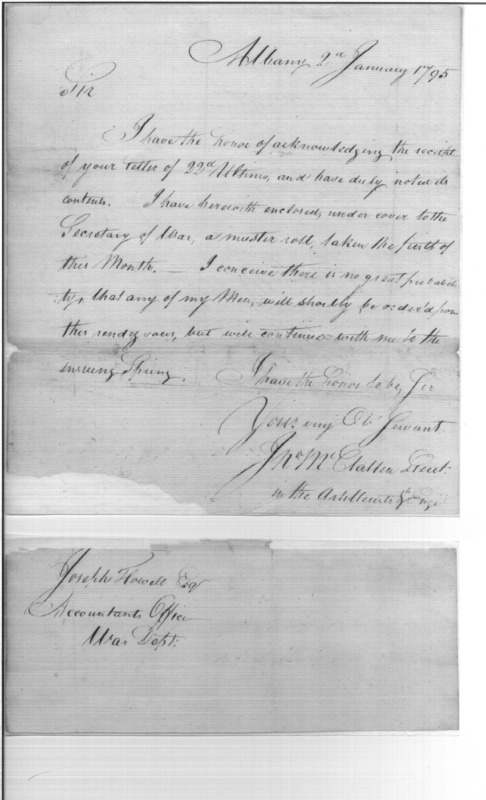 Albany 2d January 1795
Sir
I have the honor of acknowledging the receipt
of your letter of 22d Ultimo, and have duly noted its
contents. I have herewith enclosed, under cover to the
Secretary of War, a muster roll, taken the first of
this Month. — I conceive there is no great probabili
ty, that any of my Men, will shortly be order'd from
this rendezvous, but will continue with me to the
ensuing Spring.
I have the Honor to be, Sir
Your very Obt Servant
Jno McClallen Lieut.
in the Artillerists & Engs
Joseph Howell Esqr
Accountants Office
War Dept.